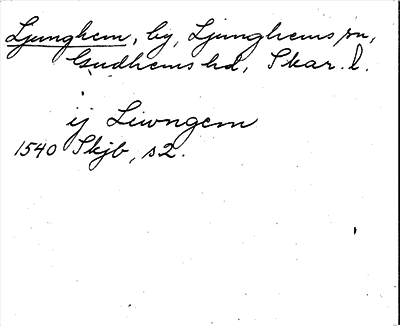 Ljunghem, by, Ljunghems sn,
Gudhems hd, Skar. l.
ij Liwngem
1540 Skjb, s2.